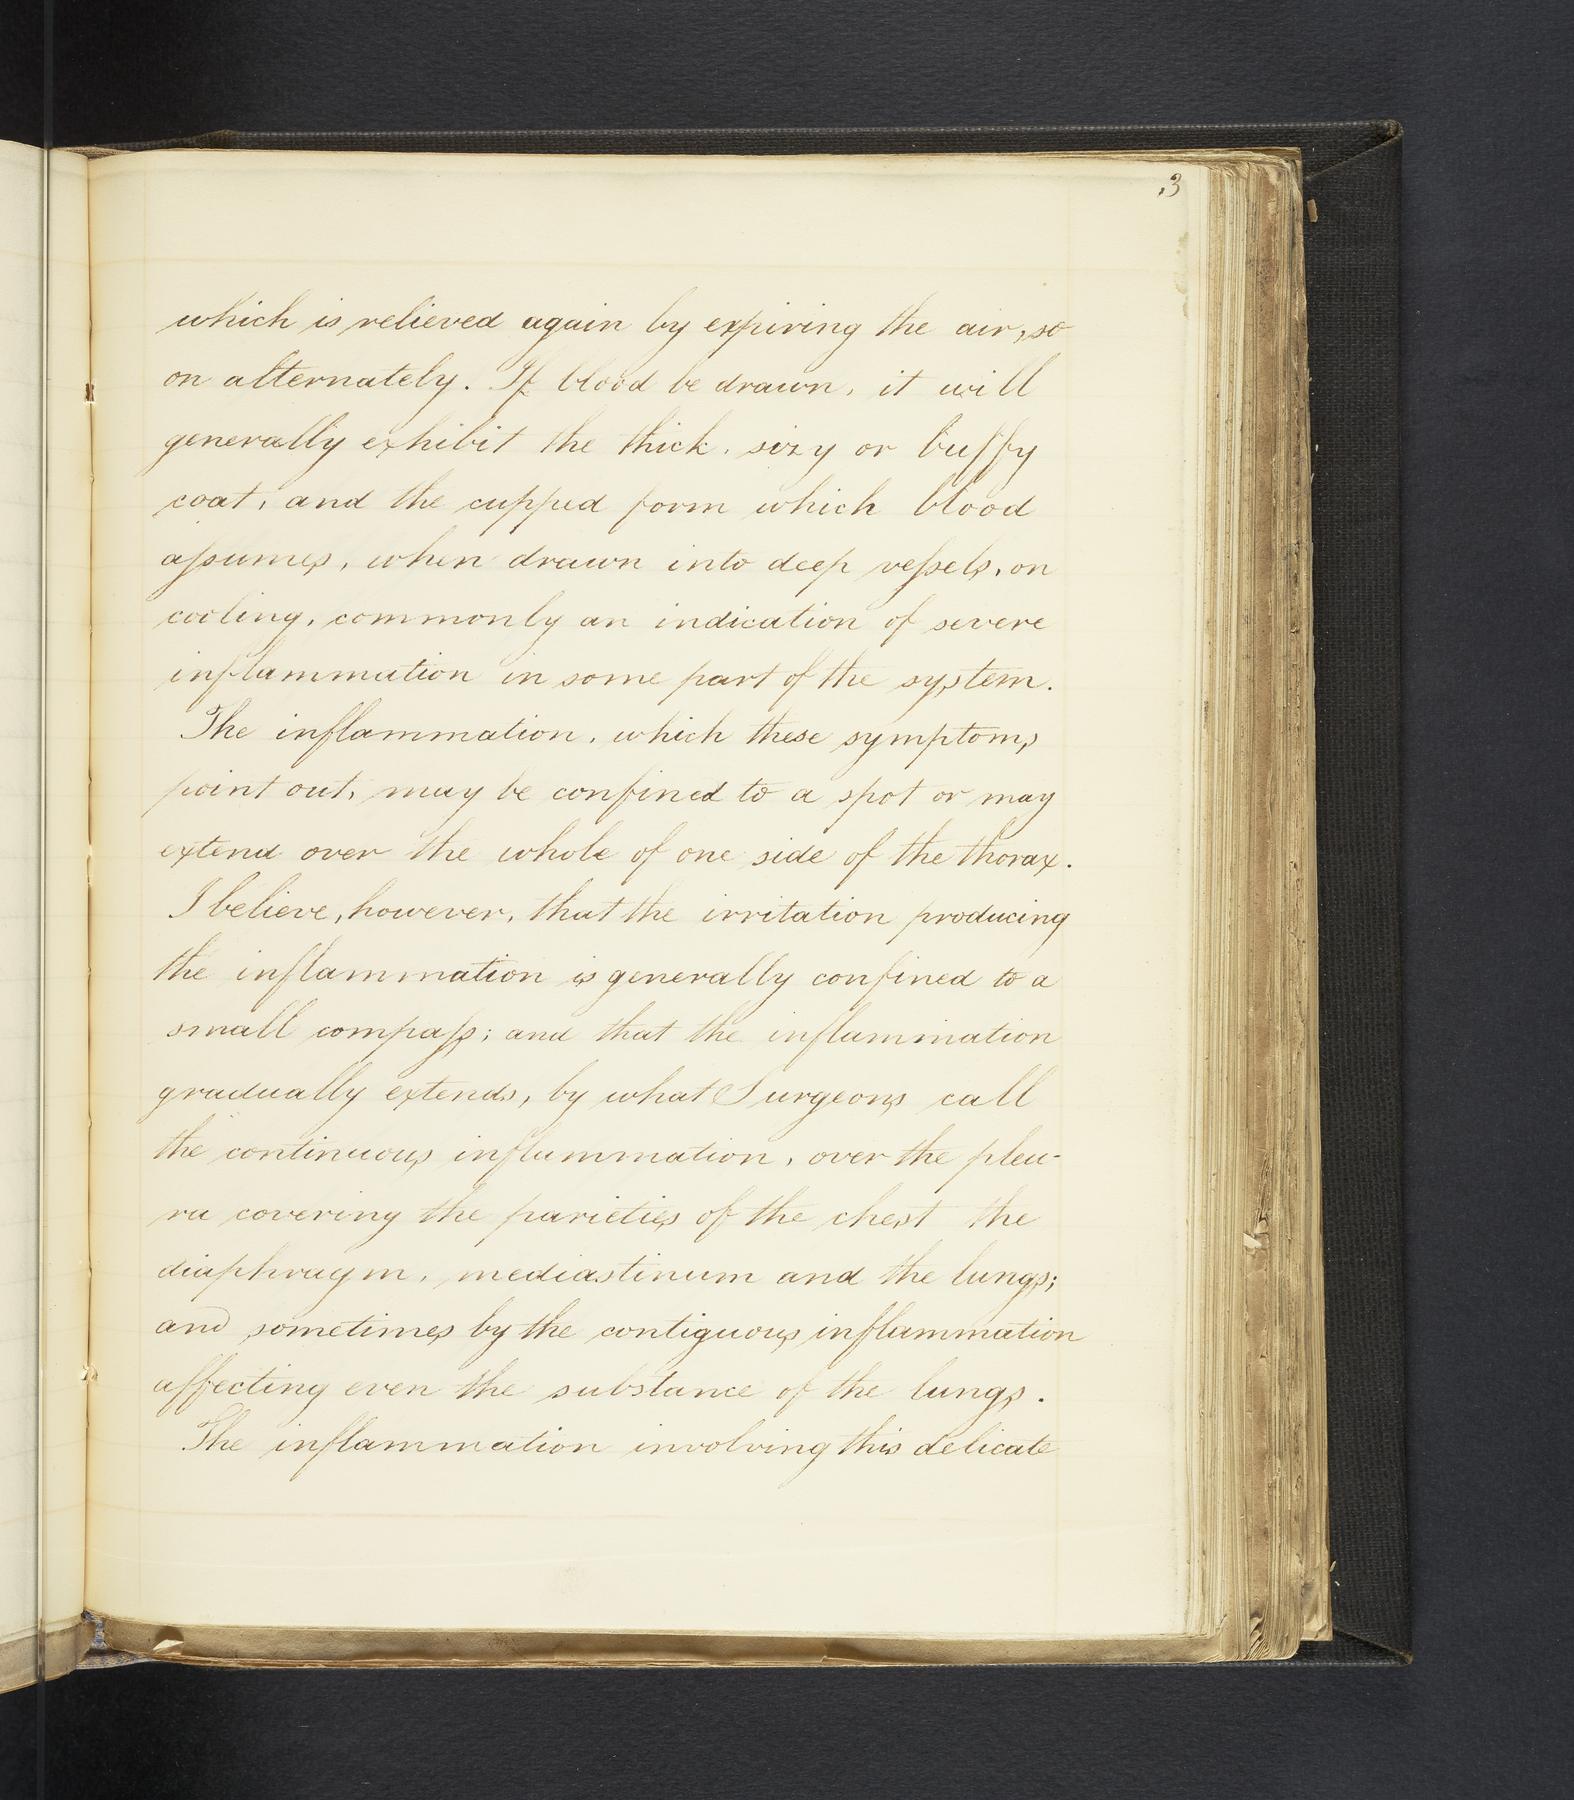 3
which is relieved again by expiring the air, so
on alternately. If blood be drawn, it will
generally exhibit the thick, sizy or buffy
coat, and the cupped form which blood
aſsumes, when drawn into deep veſsels, on
cooling, commonly an indication of severe
inflammation in some part of the system.
The inflammation, which these symptoms
point out, may be confined to a spot or may
extend over the whole of one side of the thorax.
I believe, however, that the irritation producing
the inflammation is generally confined to a
small compaſs; and that the inflammation
gradually extends, by what Surgeons call
the continuous inflammation, over the pleu-
ra covering the parieties of the chest the
diaphragm, mediastinum and the lungs;
and sometimes by the contiguous inflammation
affecting even the substance of the lungs.
The inflammation involving this delicate